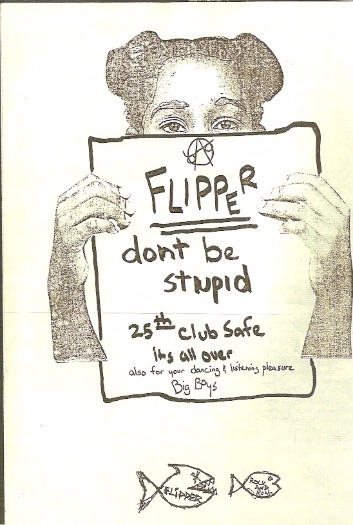 FLIPPER
dont be
stupid
25th Club Safe
its all over
also for your dancing & listening pleasure
Big Boys
FLIPPER
ROCK
AND
ROLL